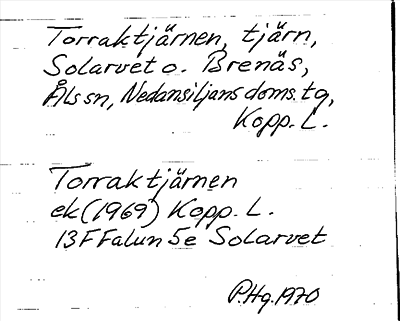 Torraktjärnen, tjärn,
Solarvet o. Brenäs,
Åls sn, Nedansiljans doms. tg,
Kopp. L.
Torraktjärnen
ek (1969) Kopp. L.
13F Falun 5e Solarvet
P.Hg. 1970